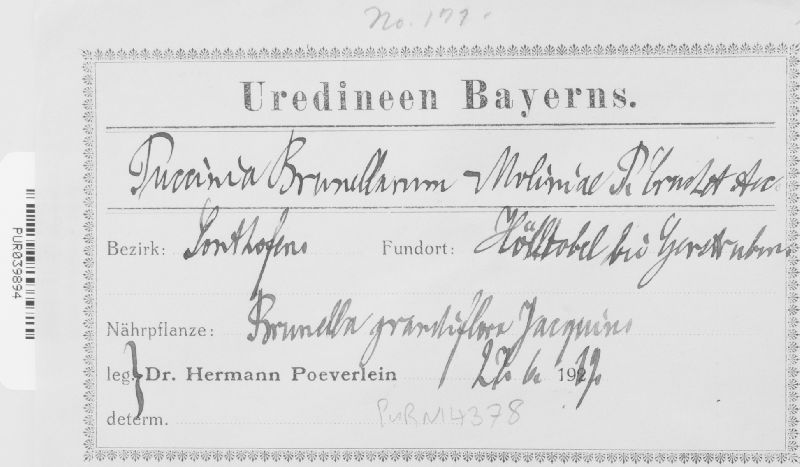 No. 179.
Uredineen Bayerns.
Puccinia Brunellarum-Moliniae P. Cruchet
Bezirk: Sonthofen Fundort: Hölltobel bei Gerstruben
Nährpflanze: Brunella grandiflora Jacquin
leg. Dr. Hermann Poeverlein 6. 19
determ.
PUR N14378
PUR039894